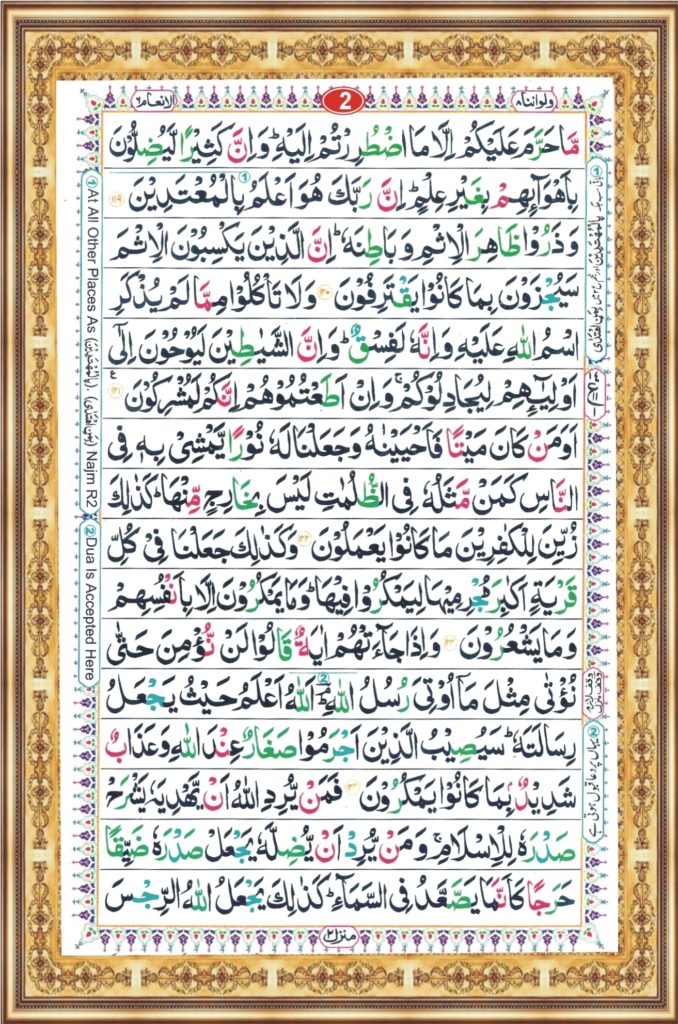 ولواننا ٨
2
الانعام ٦
مَّا حَرَّمَ عَلَيْكُمْ اِلَّا مَا اضْطُرِرْتُمْ اِلَيْهِ ؕ وَاِنَّ كَثِيْرًا لَّيُضِلُّوْنَ
بِاَهْوَآئِهِمْ بِغَيْرِ عِلْمٍ ؕ اِنَّ رَبَّكَ هُوَ اَعْلَمُ بِالْمُعْتَدِيْنَ ۝۱۱۹
وَذَرُوْا ظَاهِرَ الْاِثْمِ وَبَاطِنَهٗ ؕ اِنَّ الَّذِيْنَ يَكْسِبُوْنَ الْاِثْمَ
سَيُجْزَوْنَ بِمَا كَانُوْا يَقْتَرِفُوْنَ ۝۱۲۰ وَلَا تَاْكُلُوْا مِمَّا لَمْ يُذْكَرِ
اسْمُ اللّٰهِ عَلَيْهِ وَاِنَّهٗ لَفِسْقٌ ؕ وَاِنَّ الشَّيٰطِيْنَ لَيُوْحُوْنَ اِلٰٓى
اَوْلِيٰٓئِهِمْ لِيُجَادِلُوْكُمْ ۚ وَاِنْ اَطَعْتُمُوْهُمْ اِنَّكُمْ لَمُشْرِكُوْنَ ۝۱۲۱
اَوَمَنْ كَانَ مَيْتًا فَاَحْيَيْنٰهُ وَجَعَلْنَا لَهٗ نُوْرًا يَّمْشِىْ بِهٖ فِى
النَّاسِ كَمَنْ مَّثَلُهٗ فِى الظُّلُمٰتِ لَيْسَ بِخَارِجٍ مِّنْهَا ؕ كَذٰلِكَ
زُيِّنَ لِلْكٰفِرِيْنَ مَا كَانُوْا يَعْمَلُوْنَ ۝۱۲۲ وَكَذٰلِكَ جَعَلْنَا فِىْ كُلِّ
قَرْيَةٍ اَكٰبِرَ مُجْرِمِيْهَا لِيَمْكُرُوْا فِيْهَا ؕ وَمَا يَمْكُرُوْنَ اِلَّا بِاَنْفُسِهِمْ
وَمَا يَشْعُرُوْنَ ۝۱۲۳ وَاِذَا جَآءَتْهُمْ اٰيَةٌ قَالُوْا لَنْ نُّؤْمِنَ حَتّٰى
نُؤْتٰى مِثْلَ مَاۤ اُوْتِىَ رُسُلُ اللّٰهِ ؔۘ اَللّٰهُ اَعْلَمُ حَيْثُ يَجْعَلُ
رِسَالَتَهٗ ؕ سَيُصِيْبُ الَّذِيْنَ اَجْرَمُوْا صَغَارٌ عِنْدَ اللّٰهِ وَعَذَابٌ
شَدِيْدٌۢ بِمَا كَانُوْا يَمْكُرُوْنَ ۝۱۲۴ فَمَنْ يُّرِدِ اللّٰهُ اَنْ يَّهْدِيَهٗ يَشْرَحْ
صَدْرَهٗ لِلْاِسْلَامِ ۚ وَمَنْ يُّرِدْ اَنْ يُّضِلَّهٗ يَجْعَلْ صَدْرَهٗ ضَيِّقًا
حَرَجًا كَاَنَّمَا يَصَّعَّدُ فِى السَّمَآءِ ؕ كَذٰلِكَ يَجْعَلُ اللّٰهُ الرِّجْسَ
منزل ٢
1 At All Other Places As (بِالْمُهْتَدِيْنَ). (بِمَنِ اهْتَدٰى) Najm R2
2 Dua Is Accepted Here
2 یہاں پر دعا قبول ہوتی ہے